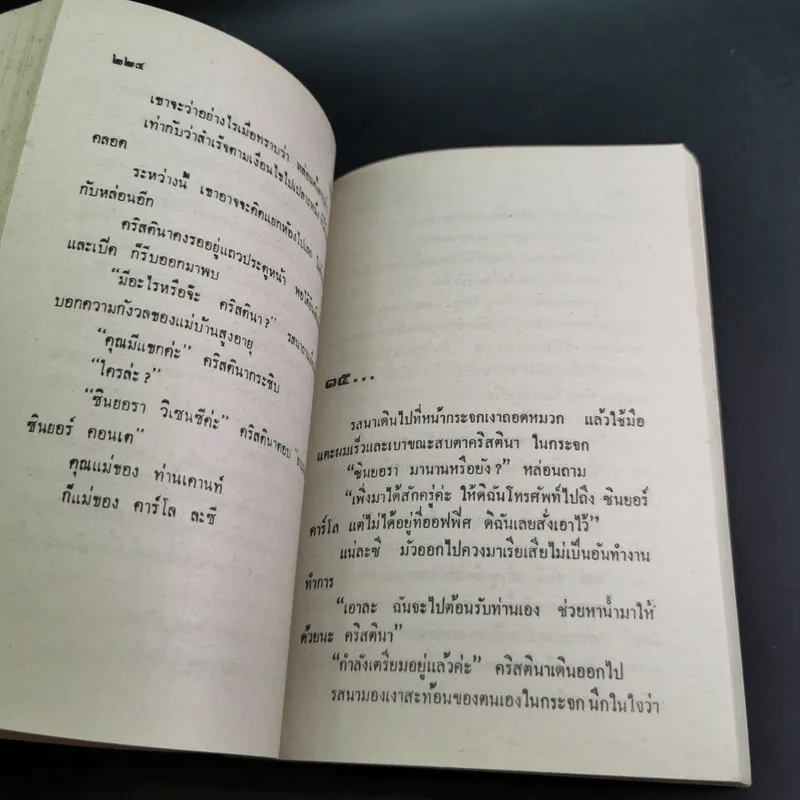 ๒๒๔
เขาจะว่าอย่างไรเมื่อทราบว่า
เท่ากับว่าสำเร็จตามเงื่อนไขไปเปลาะหนึ่ง
คลอด
ระหว่างนี้ เขาอาจจะคิดแยกห้องไปเลย
กับหล่อนอีก
คริสตินาคงรออยู่แถวประตูหน้า พอได้ยิน
และเบ๊ค ก็รีบออกมาพบ
“มีอะไรหรือจ๊ะ คริสตินา?” รสนาถาม
บอกความกังวลของแม่บ้านสูงอายุ
“คุณมีแขกค่ะ” คริสตินากระซิบ
“ใครล่ะ?”
“ซินยอรา วิเซนซีค่ะ” คริสตินาตอบ
ซินยอร์ คอนเต”
คุณแม่ของ ท่านเคานท์
ก็แม่ของ คาร์โล ละซี
๑๕...
รสนาเดินไปที่หน้ากระจกเงาถอดหมวก แล้วใช้มือ
แตะผมเร็วและเบาขณะสบตาคริสตินา ในกระจก
“ซินยอรา มานานหรือยัง?” หล่อนถาม
“เพิ่งมาได้สักครู่ค่ะ ให้ดิฉันโทรศัพท์ไปถึง ซินยอร์
คาร์โล แต่ไม่ได้อยู่ที่ออฟฟิศ ดิฉันเลยสั่งเอาไว้”
แน่ละซี มัวออกไปควงมาเรียเสียไม่เป็นอันทำงาน
ทำการ
“เอาละ ฉันจะไปต้อนรับท่านเอง ช่วยหาน้ำมาให้
ด้วยนะ คริสตินา”
“กำลังเตรียมอยู่แล้วค่ะ” คริสตินาเดินออกไป
รสนามองเงาสะท้อนของตนเองในกระจก นึกในใจว่า